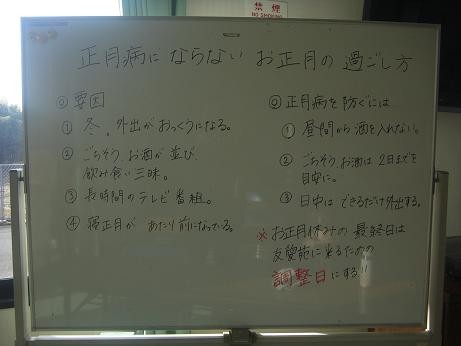 禁煙
NO SMOKING
正月病にならない お正月の過ごし方
◎要因
① 冬、外出がおっくうになる。
② ごちそう、お酒が並び、
飲み食い三昧。
③ 長時間のテレビ番組。
④ 寝正月があたり前になっている。
◎正月病を防ぐには
① 昼間から酒を入れない。
② ごちそう、お酒は2日までを
目安に。
③ 日中はできるだけ外出する。
※お正月休みの最終日は
友愛苑に来るための
調整日にする!!